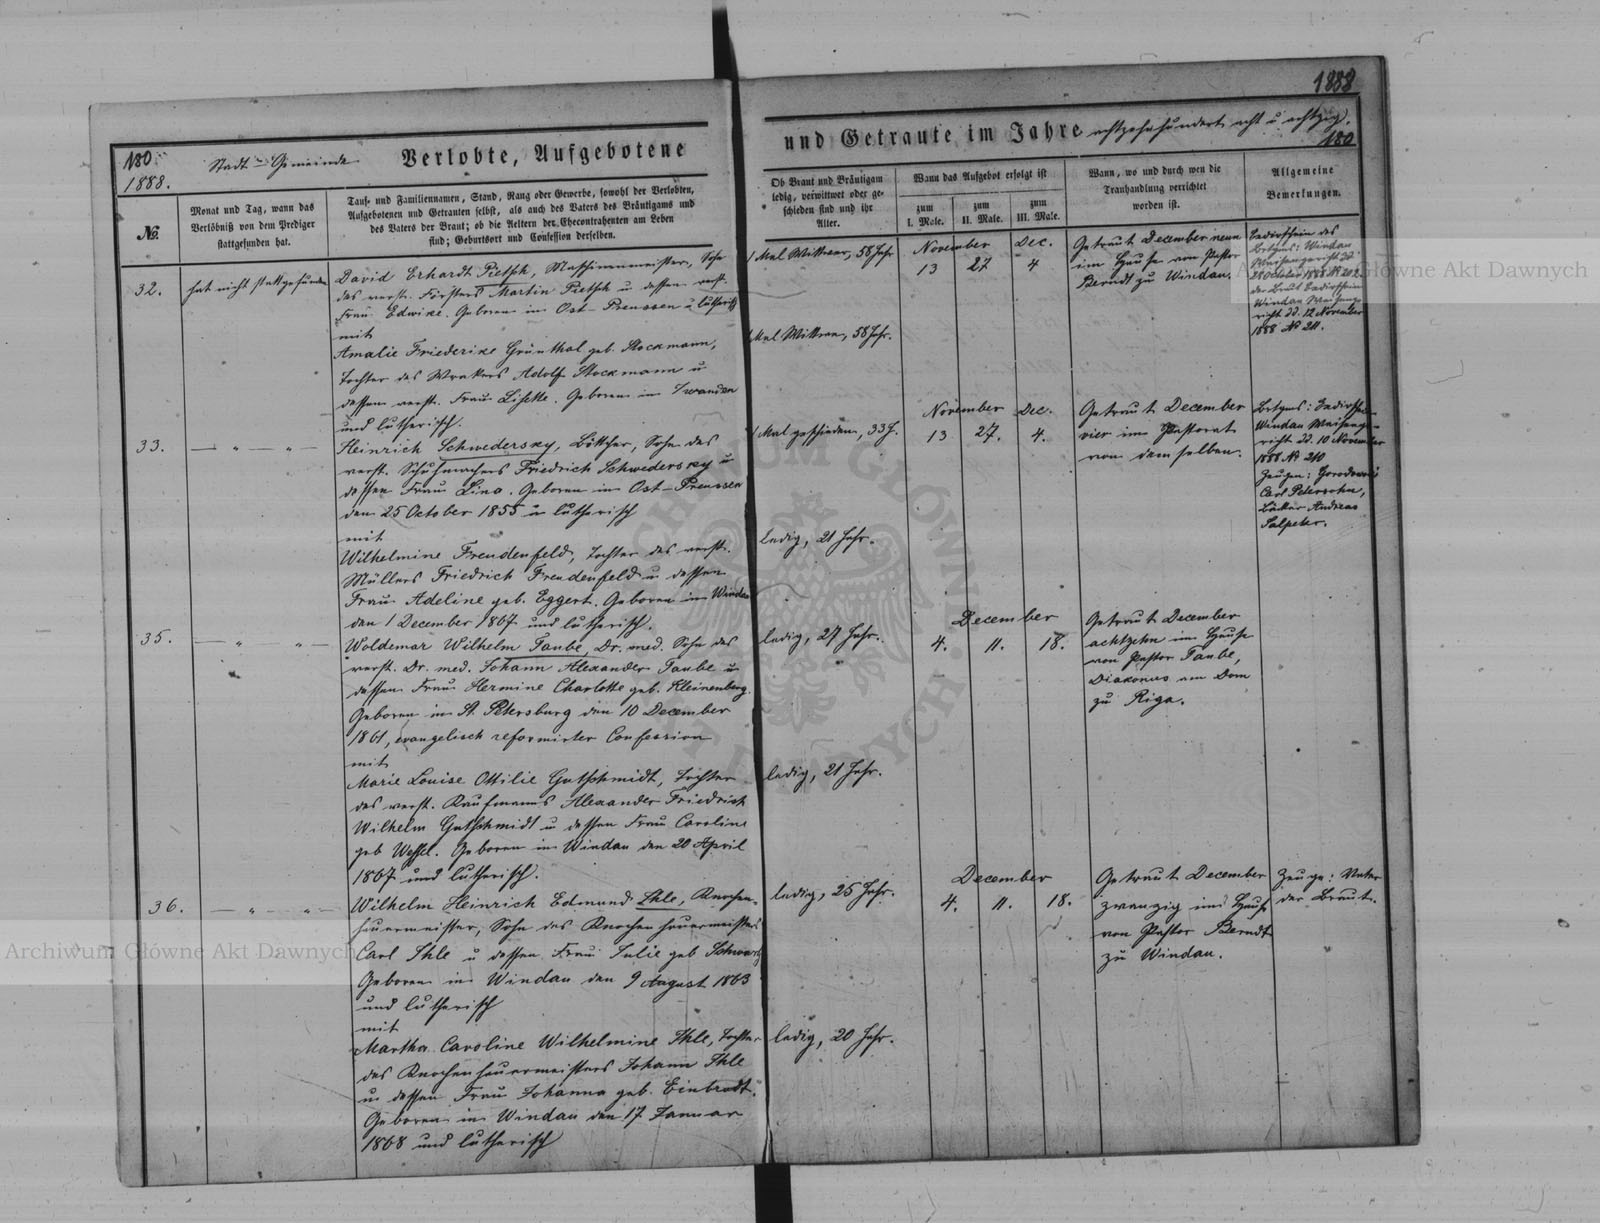 1888
180
1888.
Stadt-Gemeinde
Verlobte, Aufgebotene
und Getraute im Jahre achtzehnhundert acht u achtzig.
180
№.
Monat und Tag, wann das
Verlöbniß von dem Prediger
stattgefunden hat.
Tauf- und Familiennamen, Stand, Rang oder Gewerbe, sowohl der Verlobten,
Aufgebotenen und Getrauten selbst, als auch des Vaters des Bräutigams und
des Vaters der Braut; ob die Aeltern der Ehecontrahenten am Leben
sind; Geburtsort und Confession derselben.
Ob Braut und Bräutigam
ledig, verwittwet oder ge-
schieden sind und ihr
Alter.
Wann das Aufgebot erfolgt ist
zum
I. Male.
zum
II. Male.
zum
III. Male.
Wann, wo und durch wen die
Trauhandlung verrichtet
worden ist.
Allgemeine
Bemerkungen.
32.
hat nicht stattgefunden
David Erhardt Pietsch, Maschinenmeister, Sohn
des verst. Försters Martin Pietsch u dessen verst.
Frau Edwike. Geboren in Ost-Preussen u lutherisch
mit
Amalie Friederike Grünthal geb. Stockmann,
Tochter des Wrakers Adolf Stockmann u
dessen verst. Frau Lisette. Geboren in Zwanden
und lutherisch.
1 Mal Wittwer, 58 Jahr
1 Mal Wittwe, 58 Jahr.
November Dec.
13 27 4
Getraut December neun
im Hause von Pastor
Berndt zu Windau.
Bedirschein des
Brtgms: Windau
Waisengericht dd.
28 October 1888 № 202.
der Braut Bedirschein
Windau Waisenge-
richt dd. 12 November
1888 № 211.
33.
— „ — „ —
Heinrich Schwedersky, Böttcher, Sohn des
verst. Schuhmachers Friedrich Schwedersky u
dessen Frau Lina. Geboren in Ost-Preussen
den 25 October 1855 u lutherisch
mit
Wilhelmine Freudenfeld, Tochter des verst.
Müllers Friedrich Freudenfeld u dessen
Frau Adeline geb. Eggert. Geboren in Windau
den 1 December 1867 und lutherisch.
1 Mal geschieden, 33 J.
ledig, 21 Jahr.
November Dec.
13 27. 4.
Getraut December
vier im Pastorat
von demselben.
Brtgms: Bedirschein
Windau Waisenge-
richt dd. 10 November
1888 № 210
Zeugen:
Carl Petersohn,
Bäcker Andreas
Salpeter.
35.
— „ „ —
Woldemar Wilhelm Taube, Dr. med. Sohn des
verst. Dr. med. Johann Alexander Taube u
dessen Frau Hermine Charlotte geb. Kleinenberg.
Geboren in St. Petersburg den 10 December
1861, evangelisch reformirter Confession
mit
Marie Louise Ottilie Gutschmidt, Tochter
des verst. Kaufmanns Alexander Friedrich
Wilhelm Gutschmidt u dessen Frau Caroline
geb Wessel. Geboren in Windau den 20 April
1867 und lutherisch.
ledig, 27 Jahr.
ledig, 21 Jahr.
December
4. 11. 18.
Getraut December
achtzehn im Hause
von Pastor Taube,
Diakonus am Dom
zu Riga.
36.
— „ — „ —
Wilhelm Heinrich Edmund Ihle, Knochen-
hauermeister, Sohn des Knochenhauermeisters
Carl Ihle u dessen Frau Julie geb Schwartz
Geboren in Windau den 9 August 1863
und lutherisch
mit
Martha Caroline Wilhelmine Ihle, Tochter
des Knochenhauermeisters Johann Ihle
u dessen Frau Johanna geb. Einbrodt.
Geboren in Windau den 17 Januar
1868 und lutherisch
ledig, 25 Jahr.
ledig, 20 Jahr.
December
4. 11. 18.
Getraut December
zwanzig im Hause
von Pastor Berndt
zu Windau.
Zeuge: Vater
der Braut.
Archiwum Główne Akt Dawnych
Archiwum Główne Akt Dawnych
ARCHIWUM GŁÓWNE AKT DAWNYCH